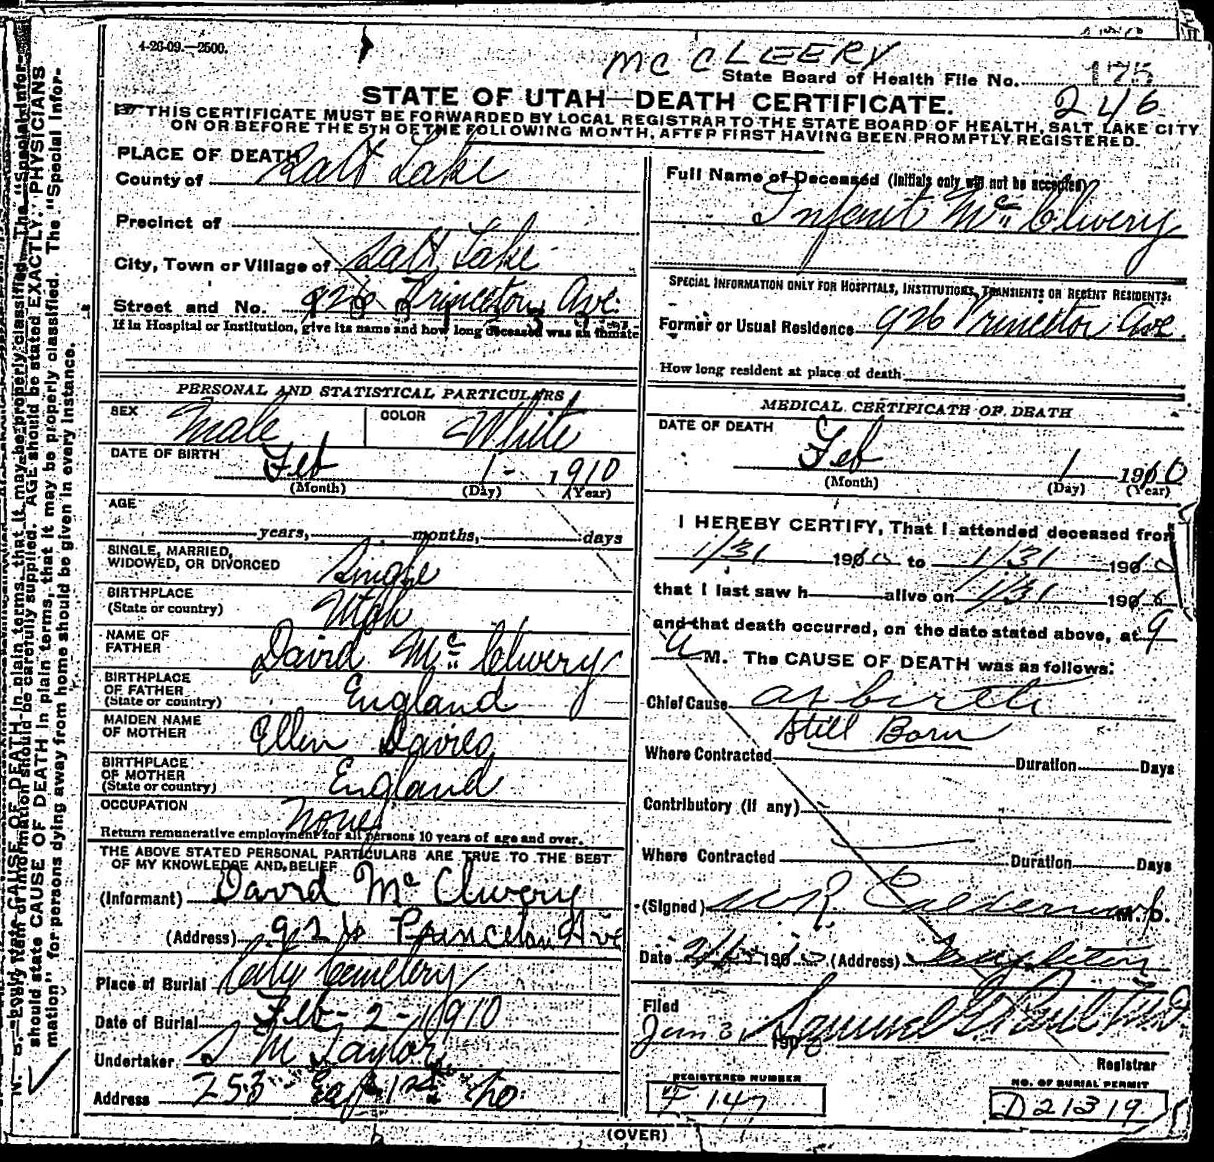 4-26-09.—2500.
MC CLEERY
State Board of Health File No. 175
246
STATE OF UTAH—DEATH CERTIFICATE.
THIS CERTIFICATE MUST BE FORWARDED BY LOCAL REGISTRAR TO THE STATE BOARD OF HEALTH, SALT LAKE CITY
ON OR BEFORE THE 5TH OF THE FOLLOWING MONTH, AFTER FIRST HAVING BEEN PROMPTLY REGISTERED.
PLACE OF DEATH
County of Salt Lake
Precinct of
City, Town or Village of Salt Lake
Street and No. 926 Princeton Ave.
If in Hospital or Institution, give its name and how long deceased was an inmate
PERSONAL AND STATISTICAL PARTICULARS
SEX Male COLOR White
DATE OF BIRTH Feb 1- 1910
(Month) (Day) (Year)
AGE
years, months, days
SINGLE, MARRIED,
WIDOWED, OR DIVORCED Single
BIRTHPLACE
(State or country) Utah
NAME OF
FATHER David Mc Clvery
BIRTHPLACE
OF FATHER
(State or country) England
MAIDEN NAME
OF MOTHER Ellen Davies
BIRTHPLACE
OF MOTHER
(State or country) England
OCCUPATION None
Return remunerative employment for all persons 10 years of age and over.
THE ABOVE STATED PERSONAL PARTICULARS ARE TRUE TO THE BEST
OF MY KNOWLEDGE AND BELIEF
(Informant) David Mc Clvery
(Address) 926 Princeton Ave
Place of Burial City Cemetery
Date of Burial Feb-2-1910
Undertaker S M Taylor
Address 253 East 1st So.
Full Name of Deceased (Initials only will not be accepted)
Infant Mc Clvery
SPECIAL INFORMATION ONLY FOR HOSPITALS, INSTITUTIONS, TRANSIENTS OR RECENT RESIDENTS:
Former or Usual Residence 926 Princeton Ave
How long resident at place of death
MEDICAL CERTIFICATE OF DEATH
DATE OF DEATH
Feb 1 1910
(Month) (Day) (Year)
I HEREBY CERTIFY, That I attended deceased from
1/31 1910 to 1/31 1910
that I last saw h alive on 1/31 1910
and that death occurred, on the date stated above, at 9
a M. The CAUSE OF DEATH was as follows:
Chief Cause at birth
Still Born
Where Contracted Duration Days
Contributory (if any)
Where Contracted Duration Days
(Signed) W R Calderwood M. D.
Date 190 (Address) Templeton
Filed
Jan 31 190 Samuel G. Paul M D
Registrar
REGISTERED NUMBER
F 147
NO. OF BURIAL PERMIT
D 21319
(OVER)
N. B.—Every item of information should be carefully supplied. AGE should be stated EXACTLY. PHYSICIANS
should state CAUSE OF DEATH in plain terms, that it may be properly classified. The "Special Infor-
mation" for persons dying away from home should be given in every instance.